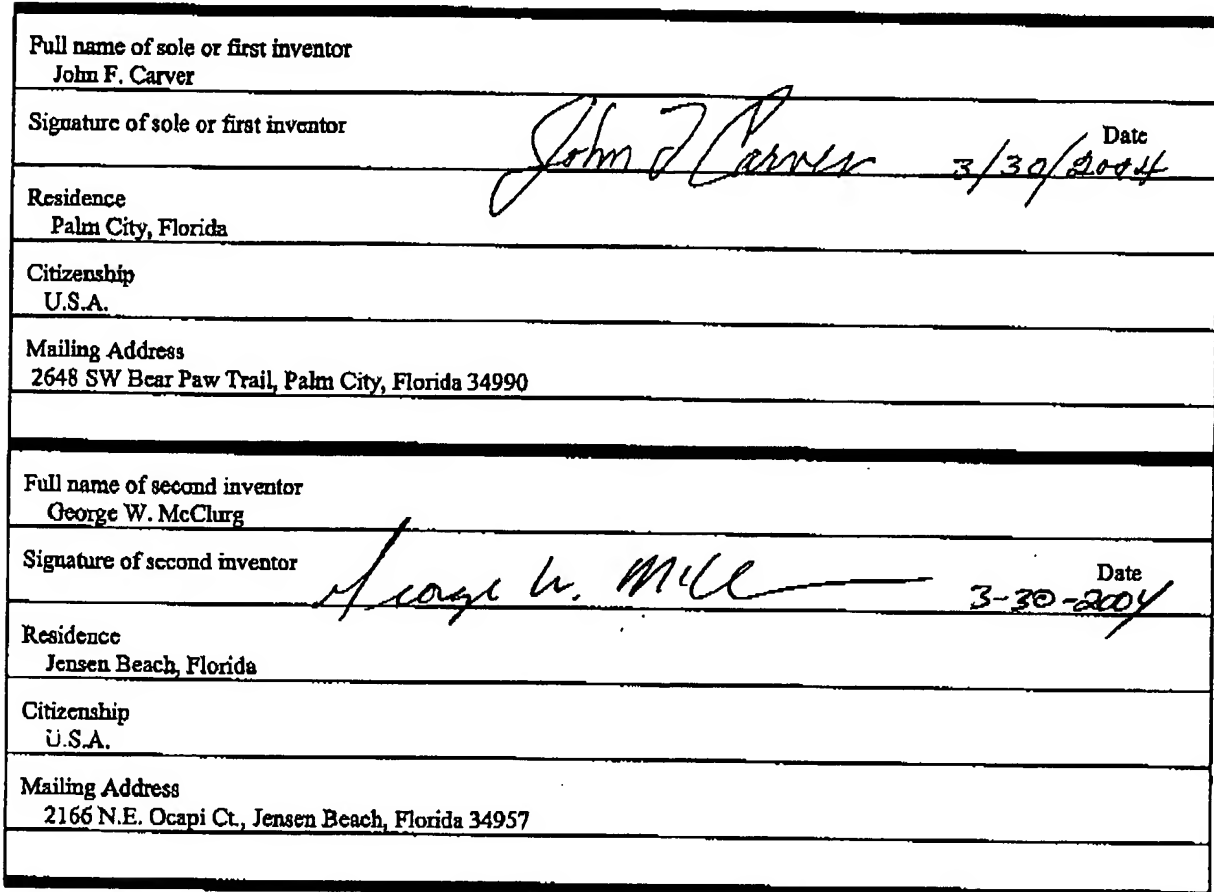 Full name of sole or first inventor
John F. Carver
Signature of sole or first inventor
John F Carver
Date
3/30/2004
Residence
Palm City, Florida
Citizenship
U.S.A.
Mailing Address
2648 SW Bear Paw Trail, Palm City, Florida 34990
Full name of second inventor
George W. McClurg
Signature of second inventor
George W. McCl
Date
3-30-2004
Residence
Jensen Beach, Florida
Citizenship
U.S.A.
Mailing Address
2166 N.E. Ocapi Ct., Jensen Beach, Florida 34957